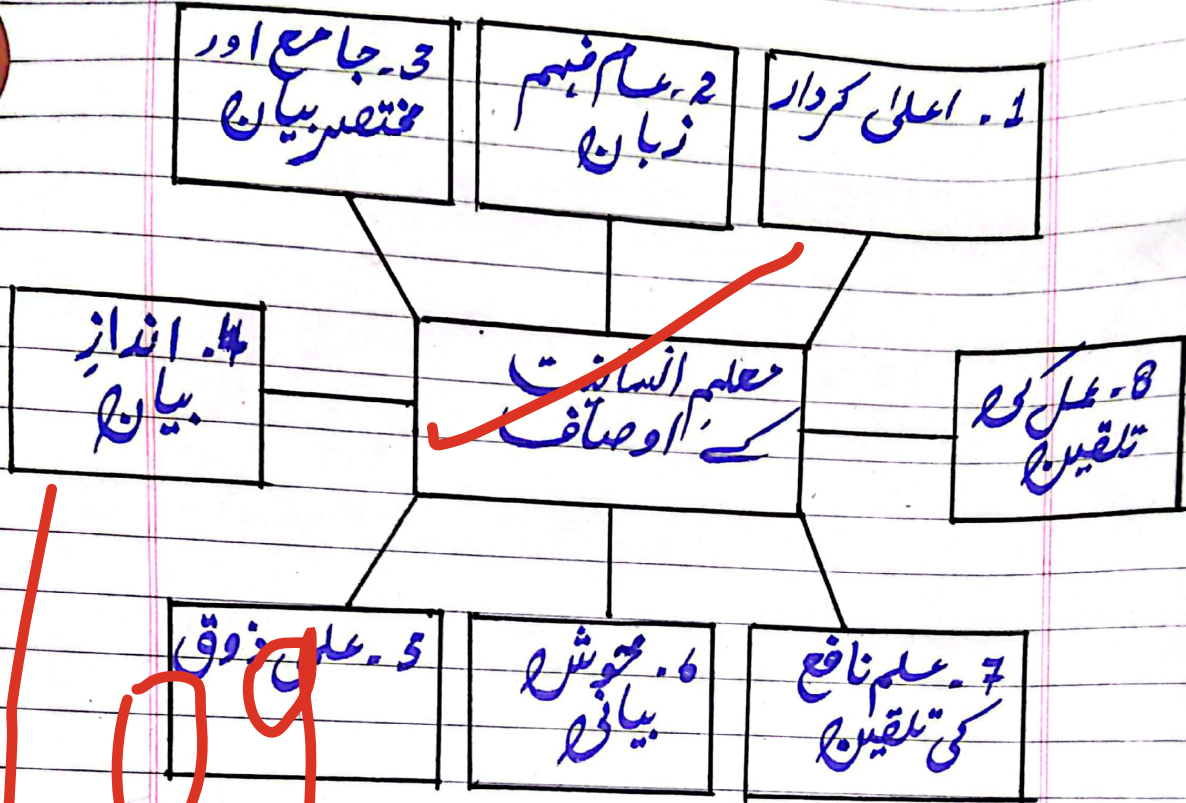 1. اعلیٰ کردار
2. عام فہم
زبان
3. جامع اور
مختصر بیان
معلمِ انسانیت
کے اوصاف
4. اندازِ
بیان
8. عمل کی
تلقین
5. علمی ذوق
6. خوش
بیانی
7. علم نافع
کی تلقین